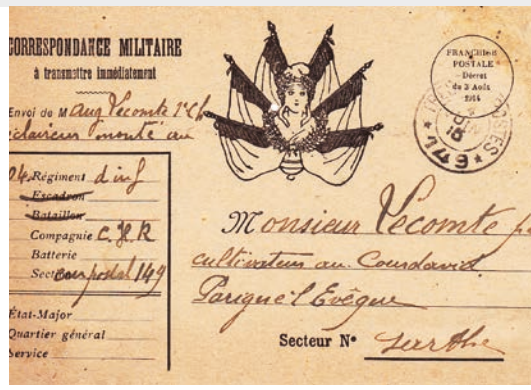 CORRESPONDANCE MILITAIRE
à transmettre immédiatement
Envoi de M Aug Lecomte 1e Cl
éclaireur monté au
04 Régiment d'inf
Escadron
Bataillon
Compagnie C.H.R
Batterie
Secteur postal 149
État-Major
Quartier général
Service
FRANCHISE
POSTALE
Décret
du 3 Août
1914
POSTES
* 149 *
Monsieur Lecomte
cultivateur au Courdavid
Parigné l'Evêque
Secteur N° Sarthe